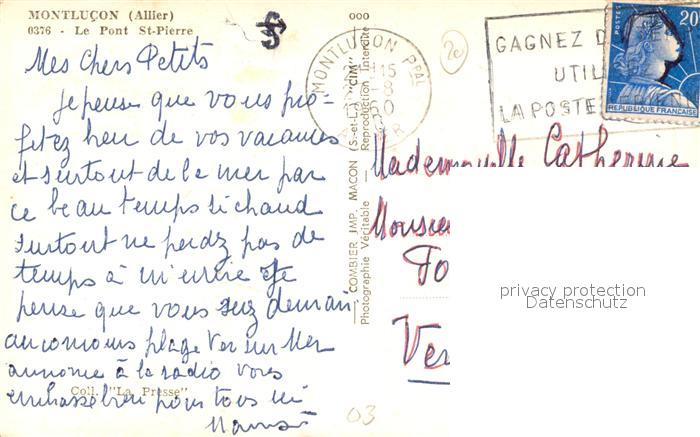 MONTLUÇON (Allier)
0376 - Le Pont St-Pierre
Mes Chers Petits
Je pense que vous pro-
fitez bien de vos vacances
et surtout de la mer par
ce beau temps si chaud
surtout ne perdez pas de
temps à m'écrire Je
pense que vous serez demain
au concours plage Ver sur Mer
annoncé à la radio vous
embrasse bien pour tous
Coll. "La Presse"
COMBIER IMP. MACON (S.-et-L.) "CIM"
Photographie Véritable — Reproduction Interdite
MONTLUÇON PPAL
15
-8
ALLIER
20
GAGNEZ D
UTIL
LA POSTE
POSTES
20
REPUBLIQUE FRANÇAISE
Mademoiselle Catherine
Monsie
Fo
Ver
privacy protection
Datenschutz
03